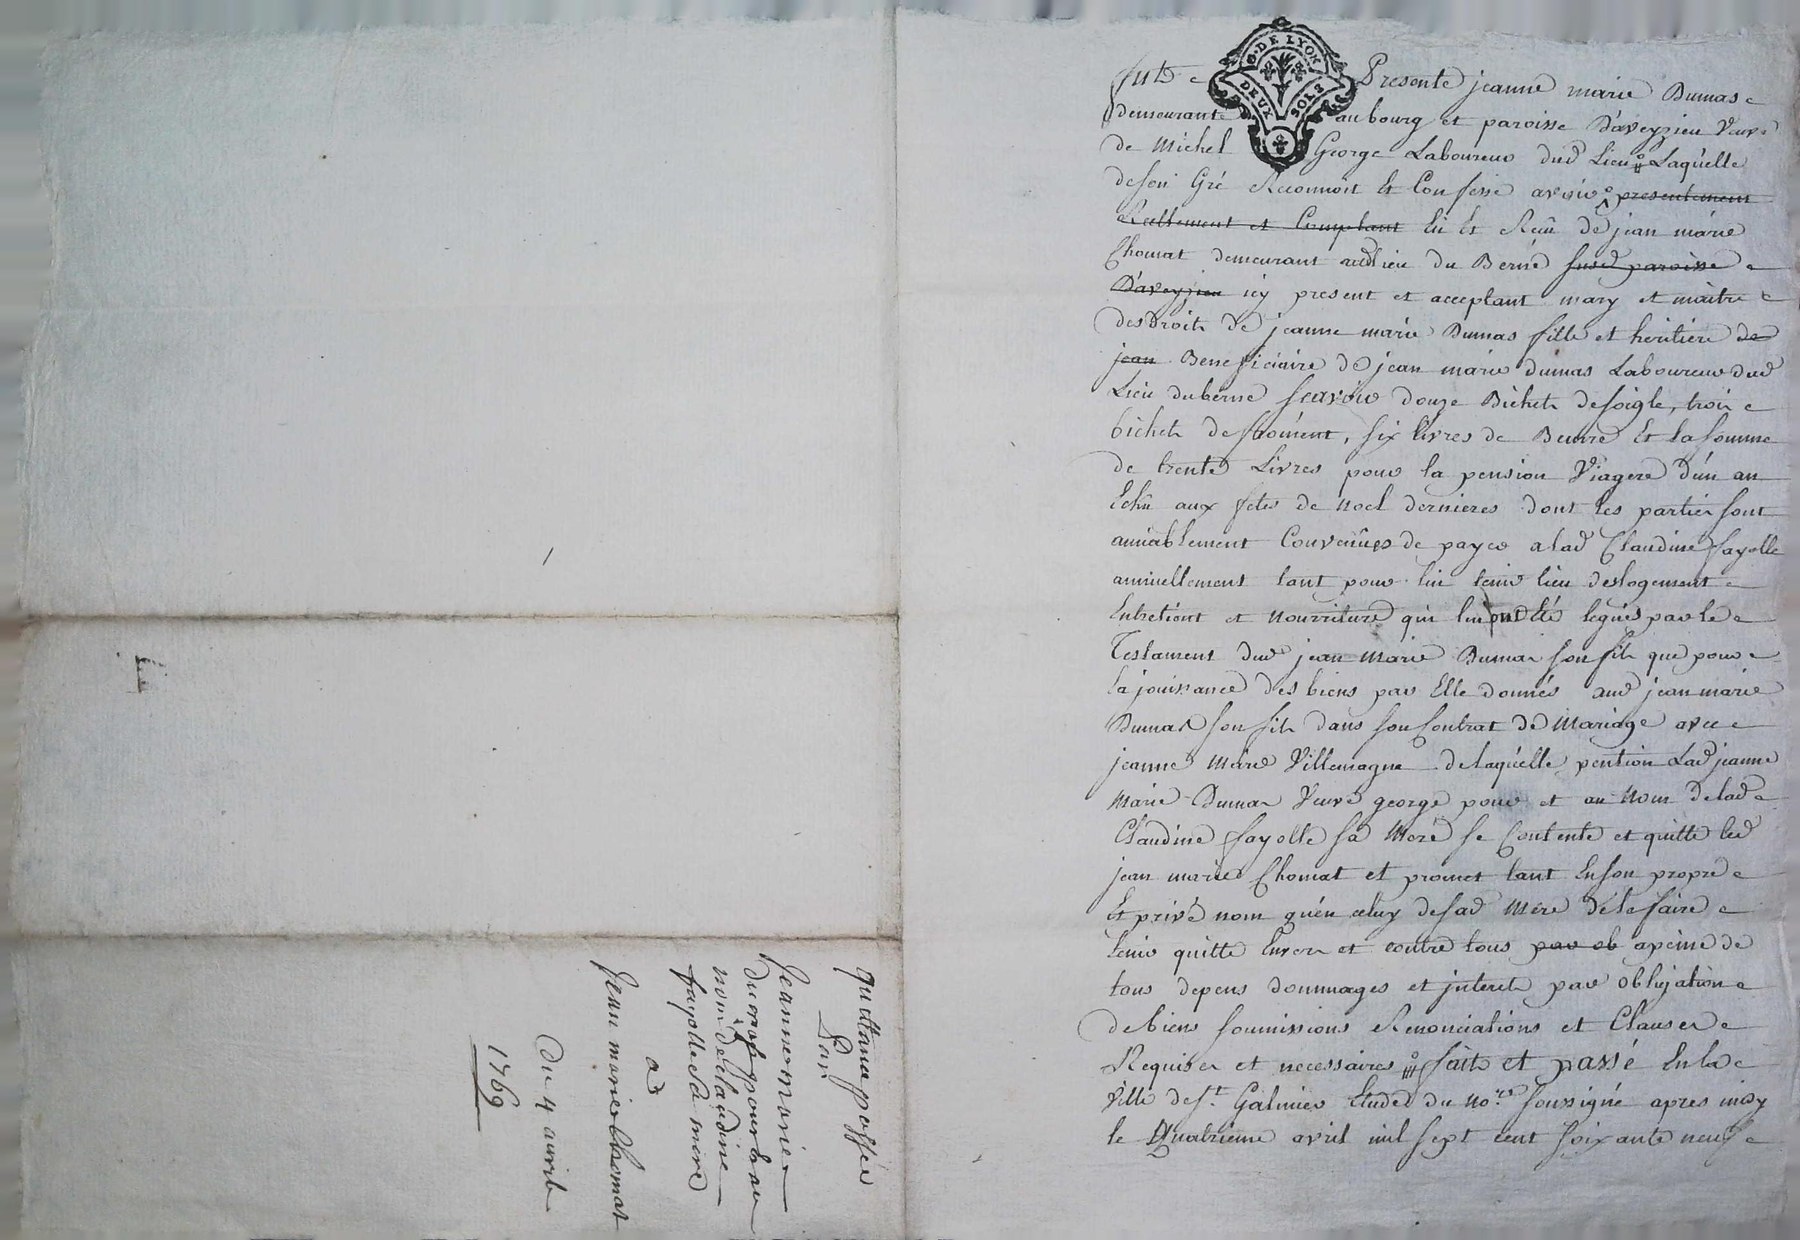 G. DE LYON
DEUX SOLS
fut Presente jeanne marie Dumas
demeurante au bourg et paroisse D'aveyzieu Veuve
de Michel George Laboureur dud Lieu Laquelle
de son Gré Reconnoit Et Confesse avoir presentement
Reellement et Comptant Eu Et Recû de jean marie
Chomat demeurant audlieu du Berné susd paroisse
D'aveyzieu icy present et acceptant mary et maitre
des Droits de jeanne marie Dumas fille et heritiere de
jean Beneficiaire de jean marie dumas Laboureur dud
Lieu du berné scavoir douze Bichets de soigle, trois
bichets de froment, six livres de Beurre Et la somme
de trente Livres pour la pension Viagere d'un an
Echû aux fetes de noel dernieres dont les parties sont
amiablement Convenües de payer a lad Claudine fayolle
annuellement tant pour lui tenir lieu des logement
Entretient et nourriture qui lui ont été legués par le
Testament dud jean Marie Dumas son fils que pour
la jouissance des biens par Elle donnés aud jean marie
Dumas son fils dans son Contrat de Mariage avec
jeanne Marie Villemagne de laquelle pention Lad jeanne
Marie Dumas Veuve george pour et au nom de lad
Claudine fayolle sa Mere se Contente et quitte led
jean marie Chomat et promet tant En son propre
Et privé nom qu'en celuy de sad Mere de le faire
tenir quitte Envers et contre tous par ob a peine de
tous depens dommages et jnterets par obligation
de biens soumissions Renonciations et Clauses
Requises et necessaires fait et passé En la
Ville de St Galmier Etude du nore soussigné apres midy
le Quatrieme avril mil sept cent soixante neuf
quittance passée
Par
Jeanne marie
dumas pour & au
nom de Claudine
fayolle sa mere
a
Jean marie Chomat
Du 4 avril
1769